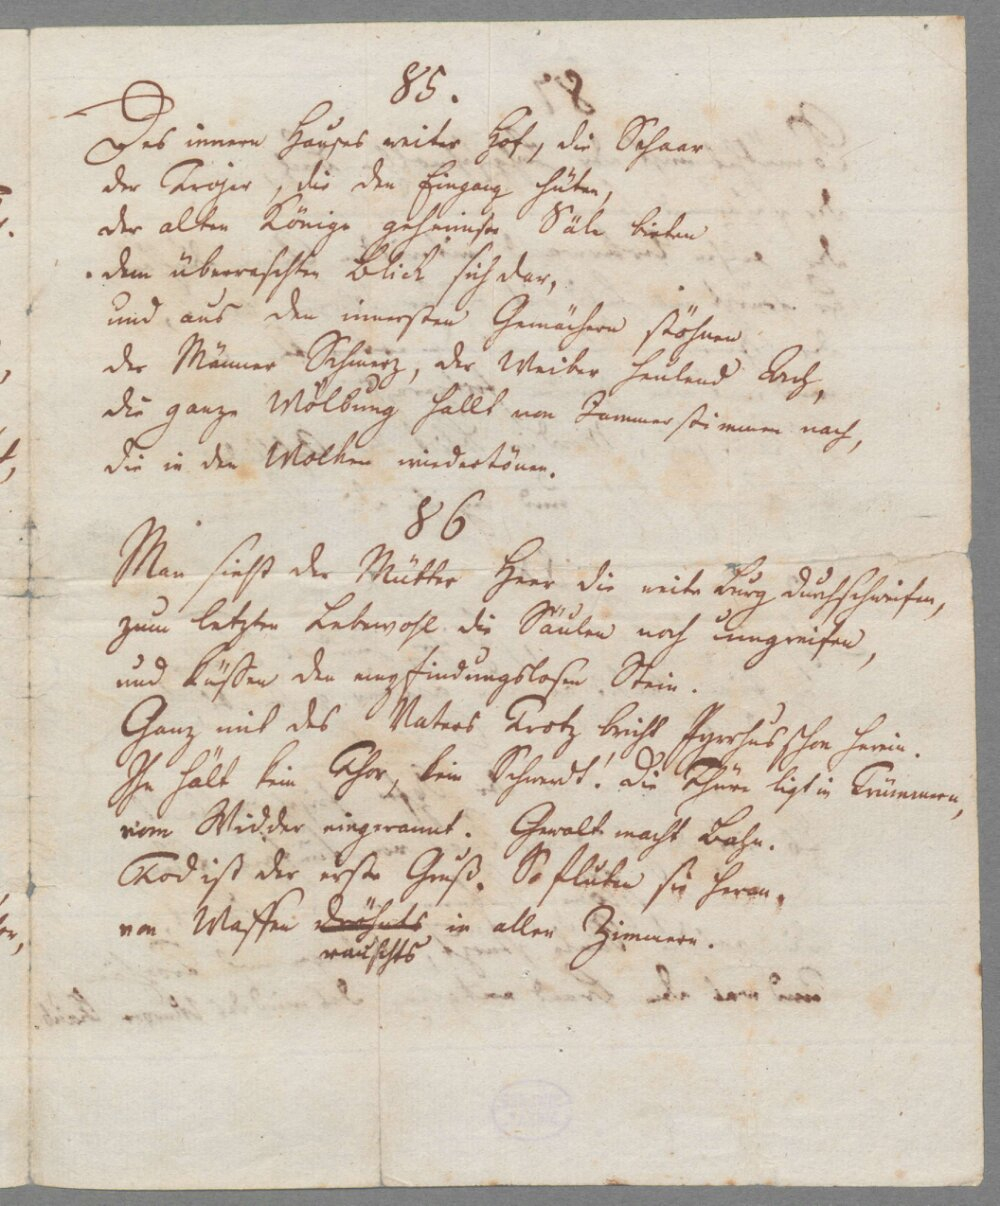 85.
Des innern Hauses weiter Hof, die Schaar
der Krieger, die den Eingang hüten,
der alten Könige geheimste Säle bieten
dem überraschten Blick sich dar,
und aus den innersten Gemächern stöhnen
der Männer Schmerz, der Weiber heulend Ach,
die ganze Wölbung hallt von Jammerstimmen nach,
die in den Wolken wiedertönen.
86
Man sieht der Mütter Heer die weite Burg durchschweifen,
zum letzten Lebewohl die Säulen noch umgreifen,
und küßen den empfindungslosen Stein.
Ganz mit des Vaters Trotz bricht Pyrrhus schon herein.
Ihn hält kein Thor, kein Schwerdt! Die Thüre ligt in Trümmern,
vom Widder eingerannt. Gewalt macht Bahn.
Tod ist der erste Gruß. So fluten sie heran,
von Waffen dröhnts in allen Zimmern.
rauschts